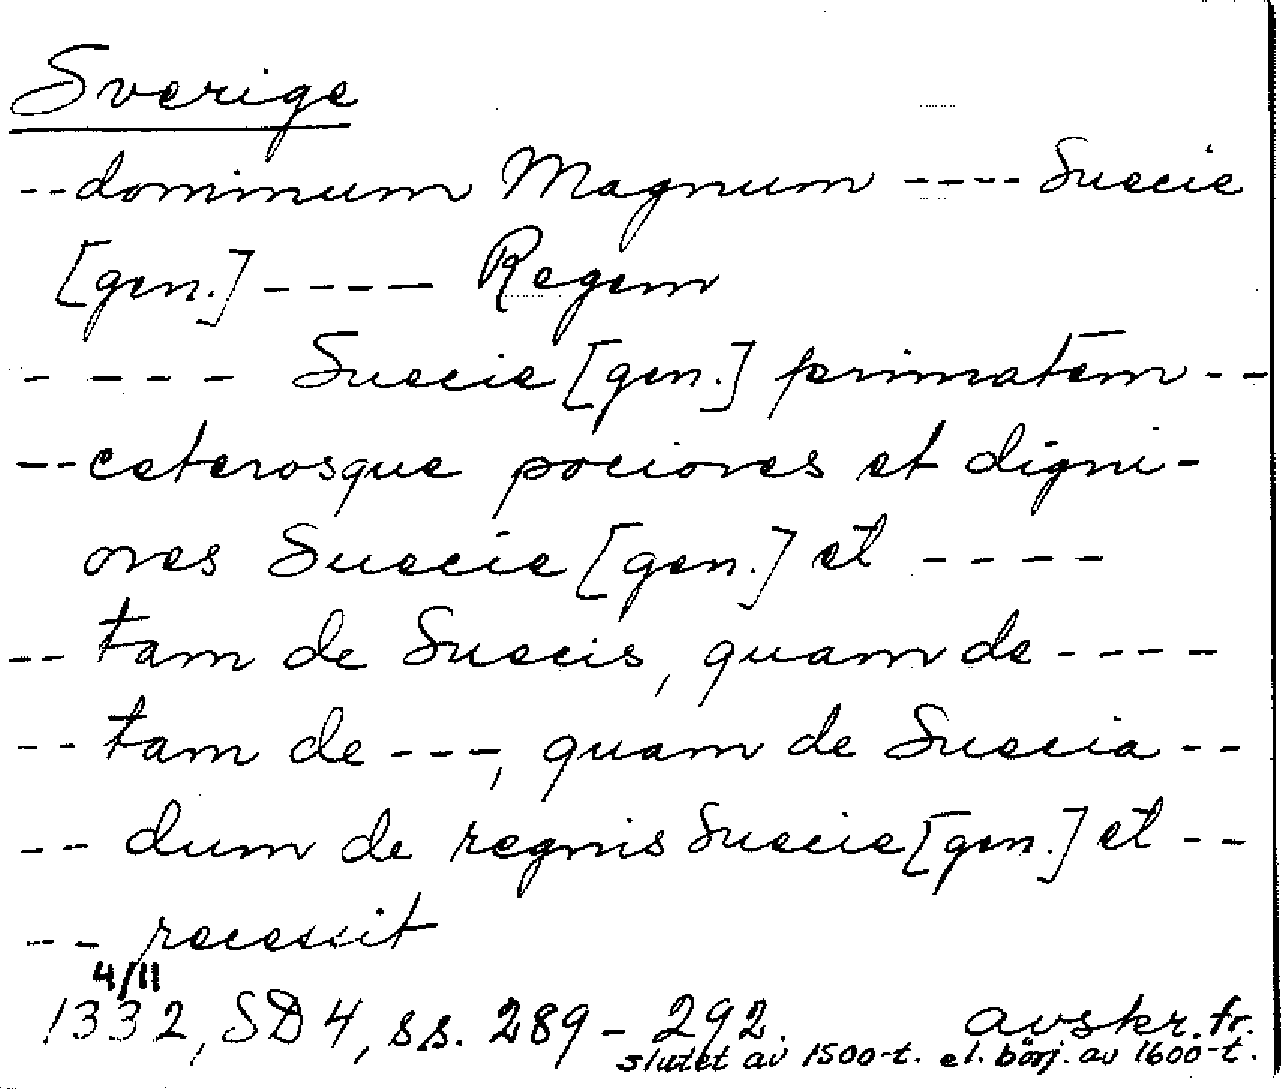 Sverige
--dominum Magnum ---- Suecie
[gen.] ---- Regem
---- Suecie [gen.] primatem --
--ceterosque pociores et digni-
ores Suecie [gen.] et ----
-- tam de Suecis, quam de ----
-- tam de ---, quam de Suecia --
-- dum de regnis Suecie [gen.] et --
-- recessit
4/11
1332, SD 4, ss. 289-292. avskr. fr.
slutet av 1500-t. el. börj. av 1600-t.